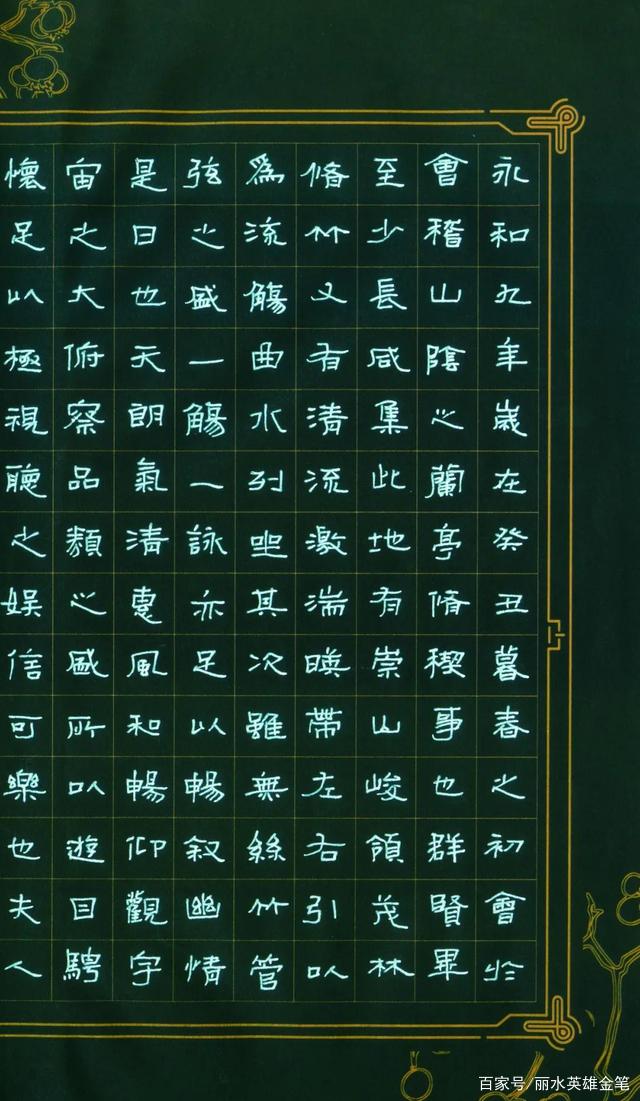 永和九年歲在癸丑暮春之初會於
會稽山陰之蘭亭脩稧事也群賢畢
至少長咸集此地有崇山峻領茂林
脩竹又有清流激湍暎帶左右引以
為流觴曲水列坐其次雖無絲竹管
弦之盛一觴一詠亦足以暢敘幽情
是日也天朗氣清惠風和暢仰觀宇
宙之大俯察品類之盛所以遊目騁
懷足以極視聽之娛信可樂也夫人
百家号/丽水英雄金笔